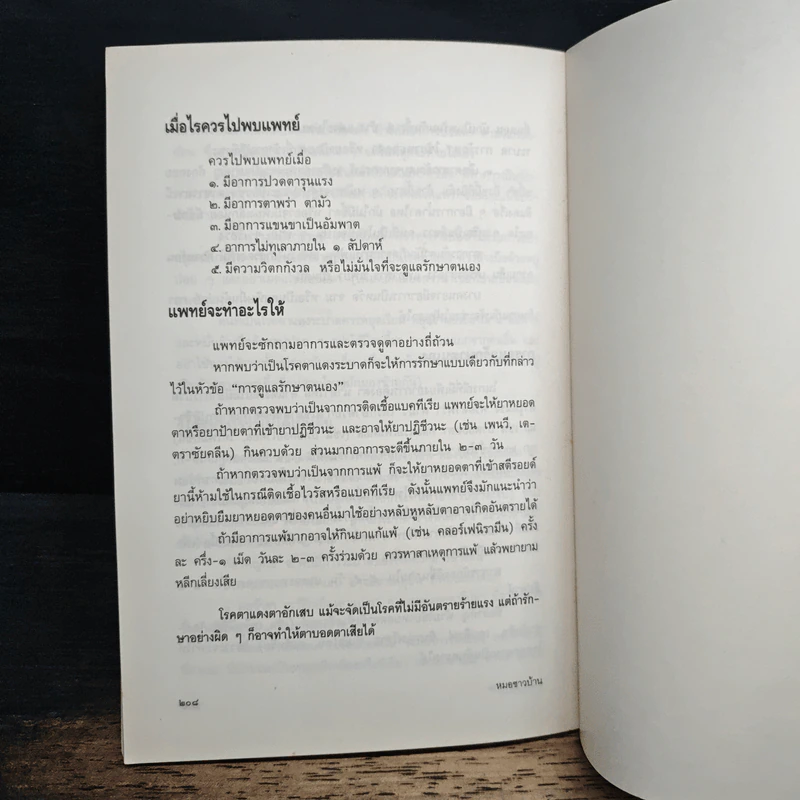 เมื่อไรควรไปพบแพทย์
ควรไปพบแพทย์เมื่อ
๑. มีอาการปวดตารุนแรง
๒. มีอาการตาพร่า ตามัว
๓. มีอาการแขนขาเป็นอัมพาต
๔. อาการไม่ทุเลาภายใน ๑ สัปดาห์
๕. มีความวิตกกังวล หรือไม่มั่นใจที่จะดูแลรักษาตนเอง
แพทย์จะทำอะไรให้
แพทย์จะซักถามอาการและตรวจดูตาอย่างถี่ถ้วน
หากพบว่าเป็นโรคตาแดงระบาดก็จะให้การรักษาแบบเดียวกับที่กล่าว
ไว้ในหัวข้อ “การดูแลรักษาตนเอง”
ถ้าหากตรวจพบว่าเป็นจากการติดเชื้อแบคทีเรีย แพทย์จะให้ยาหยอด
ตาหรือยาป้ายตาที่เข้ายาปฏิชีวนะ และอาจให้ยาปฏิชีวนะ (เช่น เพนวี, เต-
ตราซัยคลีน) กินควบด้วย ส่วนมากอาการจะดีขึ้นภายใน ๒-๓ วัน
ถ้าหากตรวจพบว่าเป็นจากการแพ้ ก็จะให้ยาหยอดตาที่เข้าสตีรอยด์
ยานี้ห้ามใช้ในกรณีติดเชื้อไวรัสหรือแบคทีเรีย ดังนั้นแพทย์จึงมักแนะนำว่า
อย่าหยิบยืมยาหยอดตาของคนอื่นมาใช้อย่างหลับหูหลับตาอาจเกิดอันตรายได้
ถ้ามีอาการแพ้มากอาจให้กินยาแก้แพ้ (เช่น คลอร์เฟนิรามีน) ครั้ง
ละ ครึ่ง-๑ เม็ด วันละ ๒-๓ ครั้งร่วมด้วย ควรหาสาเหตุการแพ้ แล้วพยายาม
หลีกเลี่ยงเสีย
โรคตาแดงตาอักเสบ แม้จะจัดเป็นโรคที่ไม่มีอันตรายร้ายแรง แต่ถ้ารัก-
ษาอย่างผิด ๆ ก็อาจทำให้ตาบอดตาเสียได้
หมอชาวบ้าน
๒๐๘